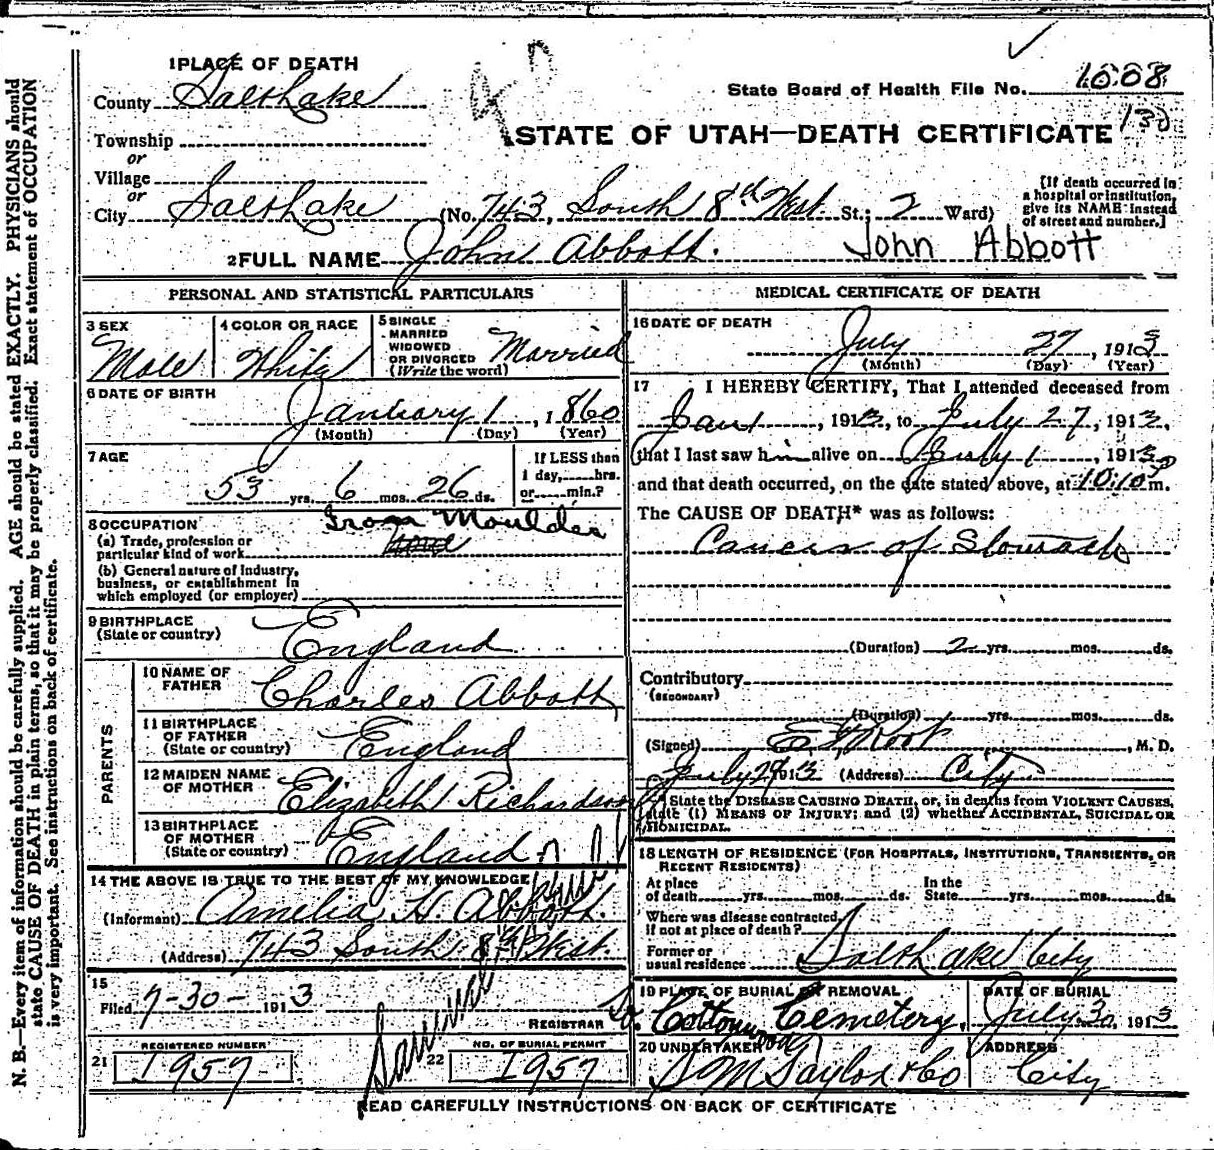 1 PLACE OF DEATH
County Salt Lake
Township
or
Village
or
City Salt Lake (No. 743, South 8th West St.; 2 Ward)
State Board of Health File No. 1608
STATE OF UTAH—DEATH CERTIFICATE
[If death occurred in
a hospital or institution,
give its NAME instead
of street and number.]
2 FULL NAME John Abbott. John Abbott
PERSONAL AND STATISTICAL PARTICULARS
3 SEX
Male
4 COLOR OR RACE
White
5 SINGLE
MARRIED
WIDOWED
OR DIVORCED
(Write the word)
Married
6 DATE OF BIRTH
January 1, 1860
(Month) (Day) (Year)
7 AGE
53 yrs. 6 mos. 26 ds.
If LESS than
1 day, hrs.
or min.?
8 OCCUPATION
(a) Trade, profession or
particular kind of work
Iron Moulder
(b) General nature of industry,
business, or establishment in
which employed (or employer)
9 BIRTHPLACE
(State or country)
England
PARENTS
10 NAME OF
FATHER
Charles Abbott
11 BIRTHPLACE
OF FATHER
(State or country)
England
12 MAIDEN NAME
OF MOTHER
Elizabeth Richardson
13 BIRTHPLACE
OF MOTHER
(State or country)
England
14 THE ABOVE IS TRUE TO THE BEST OF MY KNOWLEDGE
(Informant) Amelia H. Abbott.
(Address) 743 South 8th West.
15
Filed 7-30- 1913
REGISTRAR
21
REGISTERED NUMBER
1957
22
NO. OF BURIAL PERMIT
1957
MEDICAL CERTIFICATE OF DEATH
16 DATE OF DEATH
July 27, 1913
(Month) (Day) (Year)
17 I HEREBY CERTIFY, That I attended deceased from
Jan 1, 1913, to July 27, 1913,
that I last saw him alive on July 1, 1913
and that death occurred, on the date stated above, at 10:10 P m.
The CAUSE OF DEATH* was as follows:
Cancer of Stomach
(Duration) 2 yrs. mos. ds.
Contributory
(SECONDARY)
(Duration) yrs. mos. ds.
(Signed) , M. D.
July 29 1913 (Address) City
* State the DISEASE CAUSING DEATH, or, in deaths from VIOLENT CAUSES,
state (1) MEANS OF INJURY; and (2) whether ACCIDENTAL, SUICIDAL OR
HOMICIDAL.
18 LENGTH OF RESIDENCE (FOR HOSPITALS, INSTITUTIONS, TRANSIENTS, OR
RECENT RESIDENTS)
At place
of death yrs. mos. ds.
In the
State yrs. mos. ds.
Where was disease contracted,
if not at place of death?
Former or
usual residence Salt Lake City
19 PLACE OF BURIAL OR REMOVAL
So. Cottonwood Cemetery,
DATE OF BURIAL
July 30, 1913
20 UNDERTAKER
S M Taylor & Co
ADDRESS
City
READ CAREFULLY INSTRUCTIONS ON BACK OF CERTIFICATE
N. B.—Every item of information should be carefully supplied. AGE should be stated EXACTLY. PHYSICIANS should
state CAUSE OF DEATH in plain terms, so that it may be properly classified. Exact statement of OCCUPATION
is very important. See instructions on back of certificate.